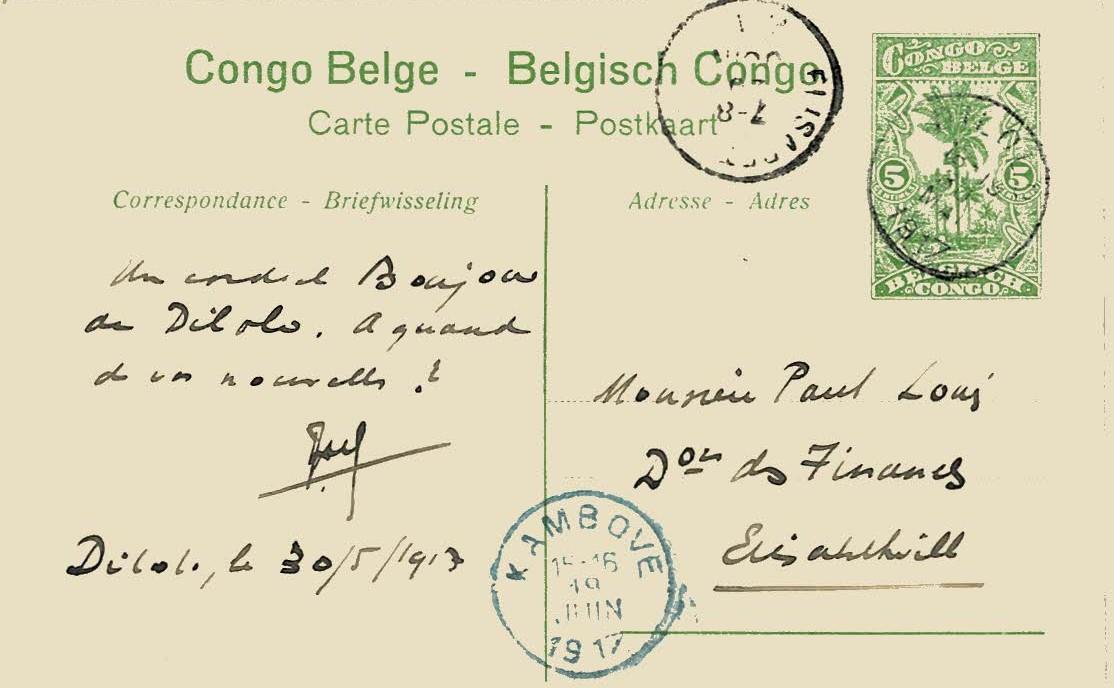 Congo Belge - Belgisch Congo
Carte Postale - Postkaart
CONGO BELGE
5 5
BELGISCH CONGO
1917
Correspondance - Briefwisseling
Adresse - Adres
Un cordial Bonjour
de Dilolo. A quand
de vos nouvelles ?
Dilolo, le 30/5/1917
Monsieur Paul Louis
Don des Finances
Elisabethville
KAMBOVE
15-16
19
JUIN
1917